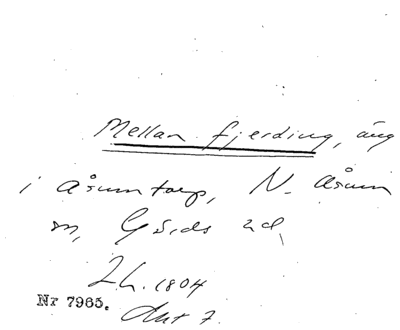 Mellan fjerding, äng
i Åsumtorp, N. Åsum
sn, Gärds hd,
L.h. 1804
Nr 7965. Akt 7.